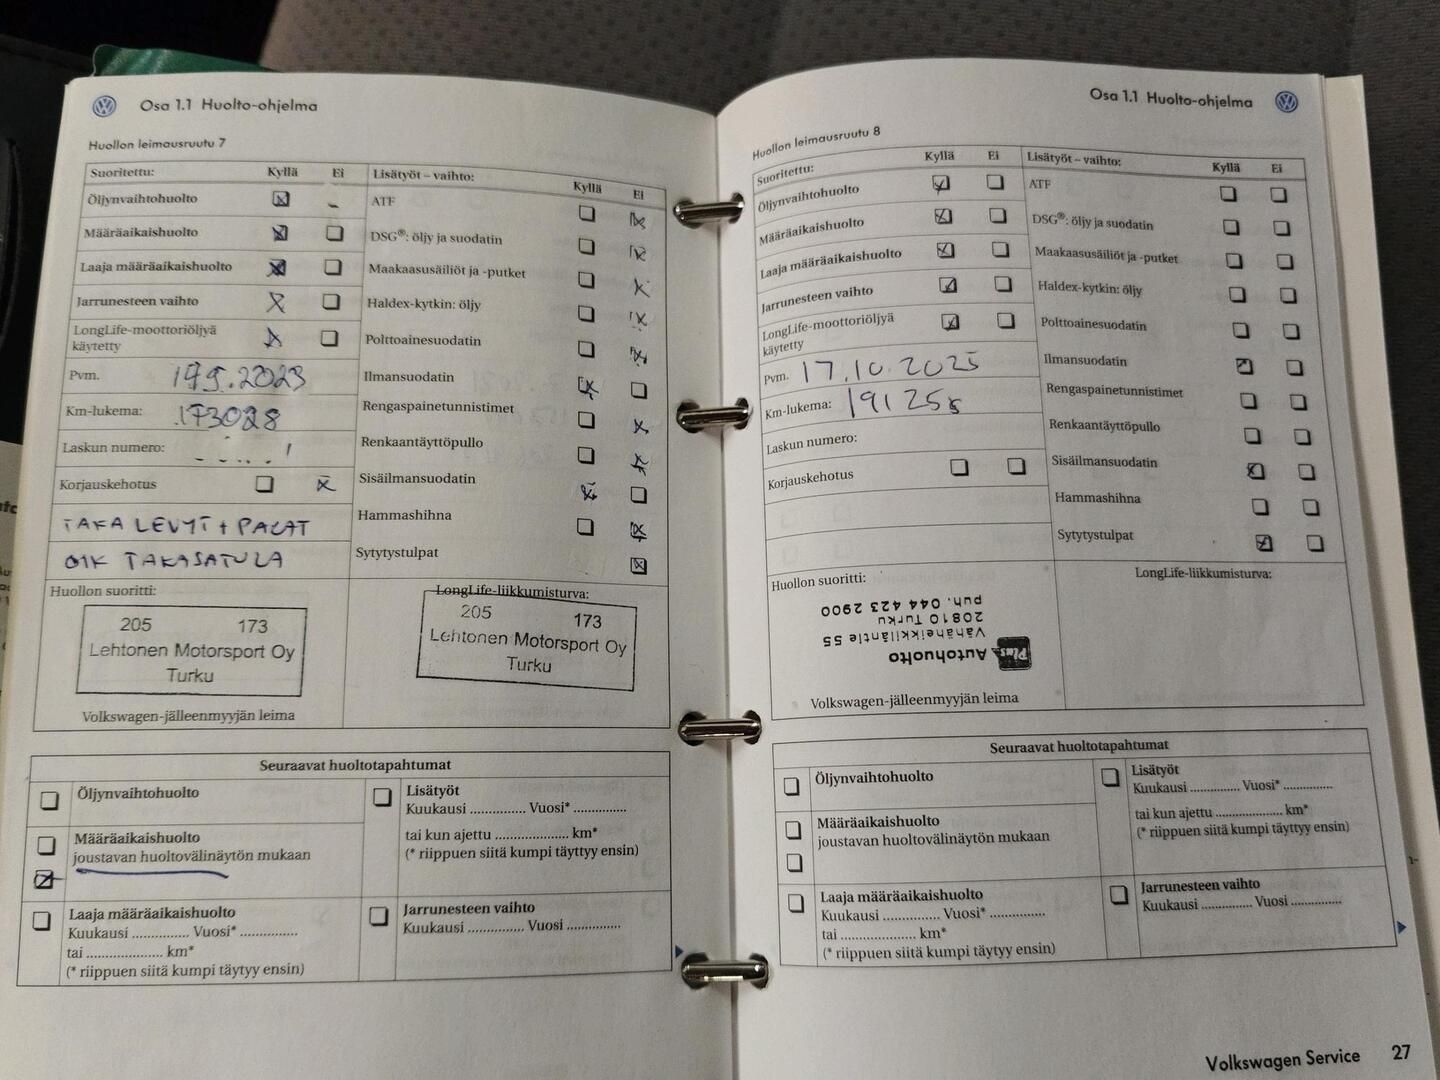 Osa 1.1 Huolto-ohjelma
Huollon leimausruutu 7
Suoritettu: Kyllä Ei
Öljynvaihtohuolto
Määräaikaishuolto
Laaja määräaikaishuolto
Jarrunesteen vaihto
LongLife-moottoriöljyä
käytetty
Pvm.
Km-lukema: 173028
Laskun numero:
Korjauskehotus
TAKA LEVYT + PALAT
OIK TAKASATULA
Lisätyöt – vaihto: Kyllä Ei
ATF
DSG®: öljy ja suodatin
Maakaasusäiliöt ja -putket
Haldex-kytkin: öljy
Polttoainesuodatin
Ilmansuodatin
Rengaspainetunnistimet
Renkaantäyttöpullo
Sisäilmansuodatin
Hammashihna
Sytytystulpat
Huollon suoritti:
205 173
Lehtonen Motorsport Oy
Turku
Volkswagen-jälleenmyyjän leima
LongLife-liikkumisturva:
205 173
Lehtonen Motorsport Oy
Turku
Seuraavat huoltotapahtumat
Öljynvaihtohuolto
Määräaikaishuolto
joustavan huoltovälinäytön mukaan
Laaja määräaikaishuolto
Kuukausi .............. Vuosi* ..............
tai .................... km*
(* riippuen siitä kumpi täytyy ensin)
Lisätyöt
Kuukausi ............. Vuosi* .............
tai kun ajettu .................... km*
(* riippuen siitä kumpi täyttyy ensin)
Jarrunesteen vaihto
Kuukausi ............. Vuosi .............
Osa 1.1 Huolto-ohjelma
Huollon leimausruutu 8
Suoritettu: Kyllä Ei
Öljynvaihtohuolto
Määräaikaishuolto
Laaja määräaikaishuolto
Jarrunesteen vaihto
LongLife-moottoriöljyä
käytetty
Pvm. 17.10.2025
Km-lukema:
Laskun numero:
Korjauskehotus
Lisätyöt – vaihto: Kyllä Ei
ATF
DSG®: öljy ja suodatin
Maakaasusäiliöt ja -putket
Haldex-kytkin: öljy
Polttoainesuodatin
Ilmansuodatin
Rengaspainetunnistimet
Renkaantäyttöpullo
Sisäilmansuodatin
Hammashihna
Sytytystulpat
Huollon suoritti:
Plus Autohuolto
Vähäheikkiläntie 55
20810 Turku
puh. 044 423 2900
Volkswagen-jälleenmyyjän leima
LongLife-liikkumisturva:
Seuraavat huoltotapahtumat
Öljynvaihtohuolto
Määräaikaishuolto
joustavan huoltovälinäytön mukaan
Laaja määräaikaishuolto
Kuukausi .............. Vuosi* ..............
tai .................... km*
(* riippuen siitä kumpi täytyy ensin)
Lisätyöt
Kuukausi ............. Vuosi* .............
tai kun ajettu .................... km*
(* riippuen siitä kumpi täyttyy ensin)
Jarrunesteen vaihto
Kuukausi ............. Vuosi .............
Volkswagen Service 27